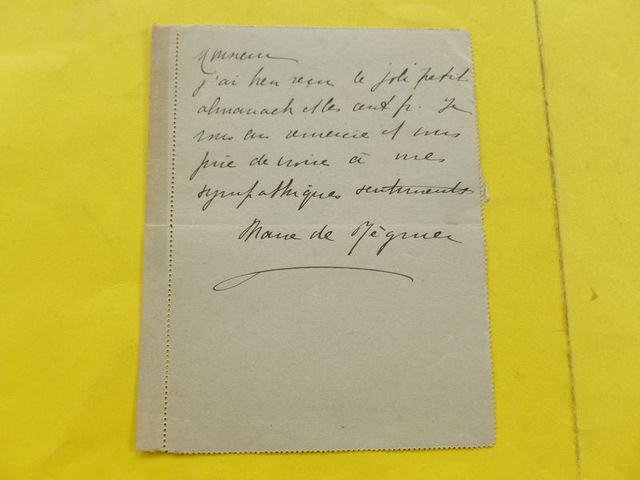 Monsieur
j'ai bien reçu le joli petit
almanach et les cent fr. Je
vous en remercie et vous
prie de croire à mes
sympathiques sentiments
Marie de Régnier